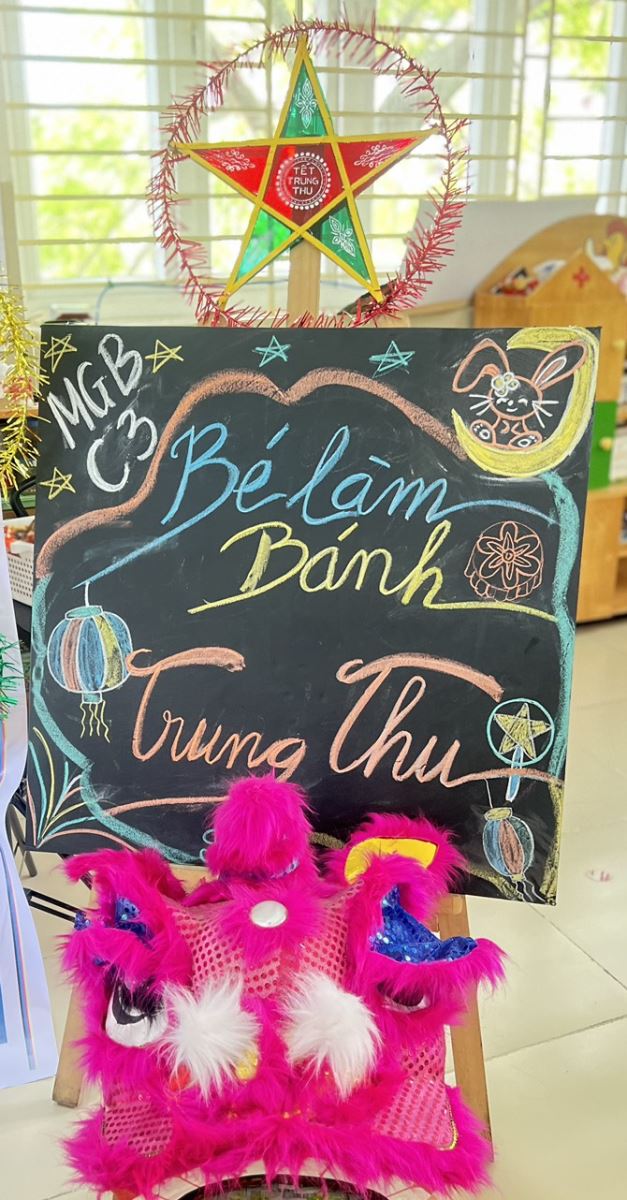 TẾT
TRUNG
THU
MGB
C3
Bé làm
Bánh
Trung Thu